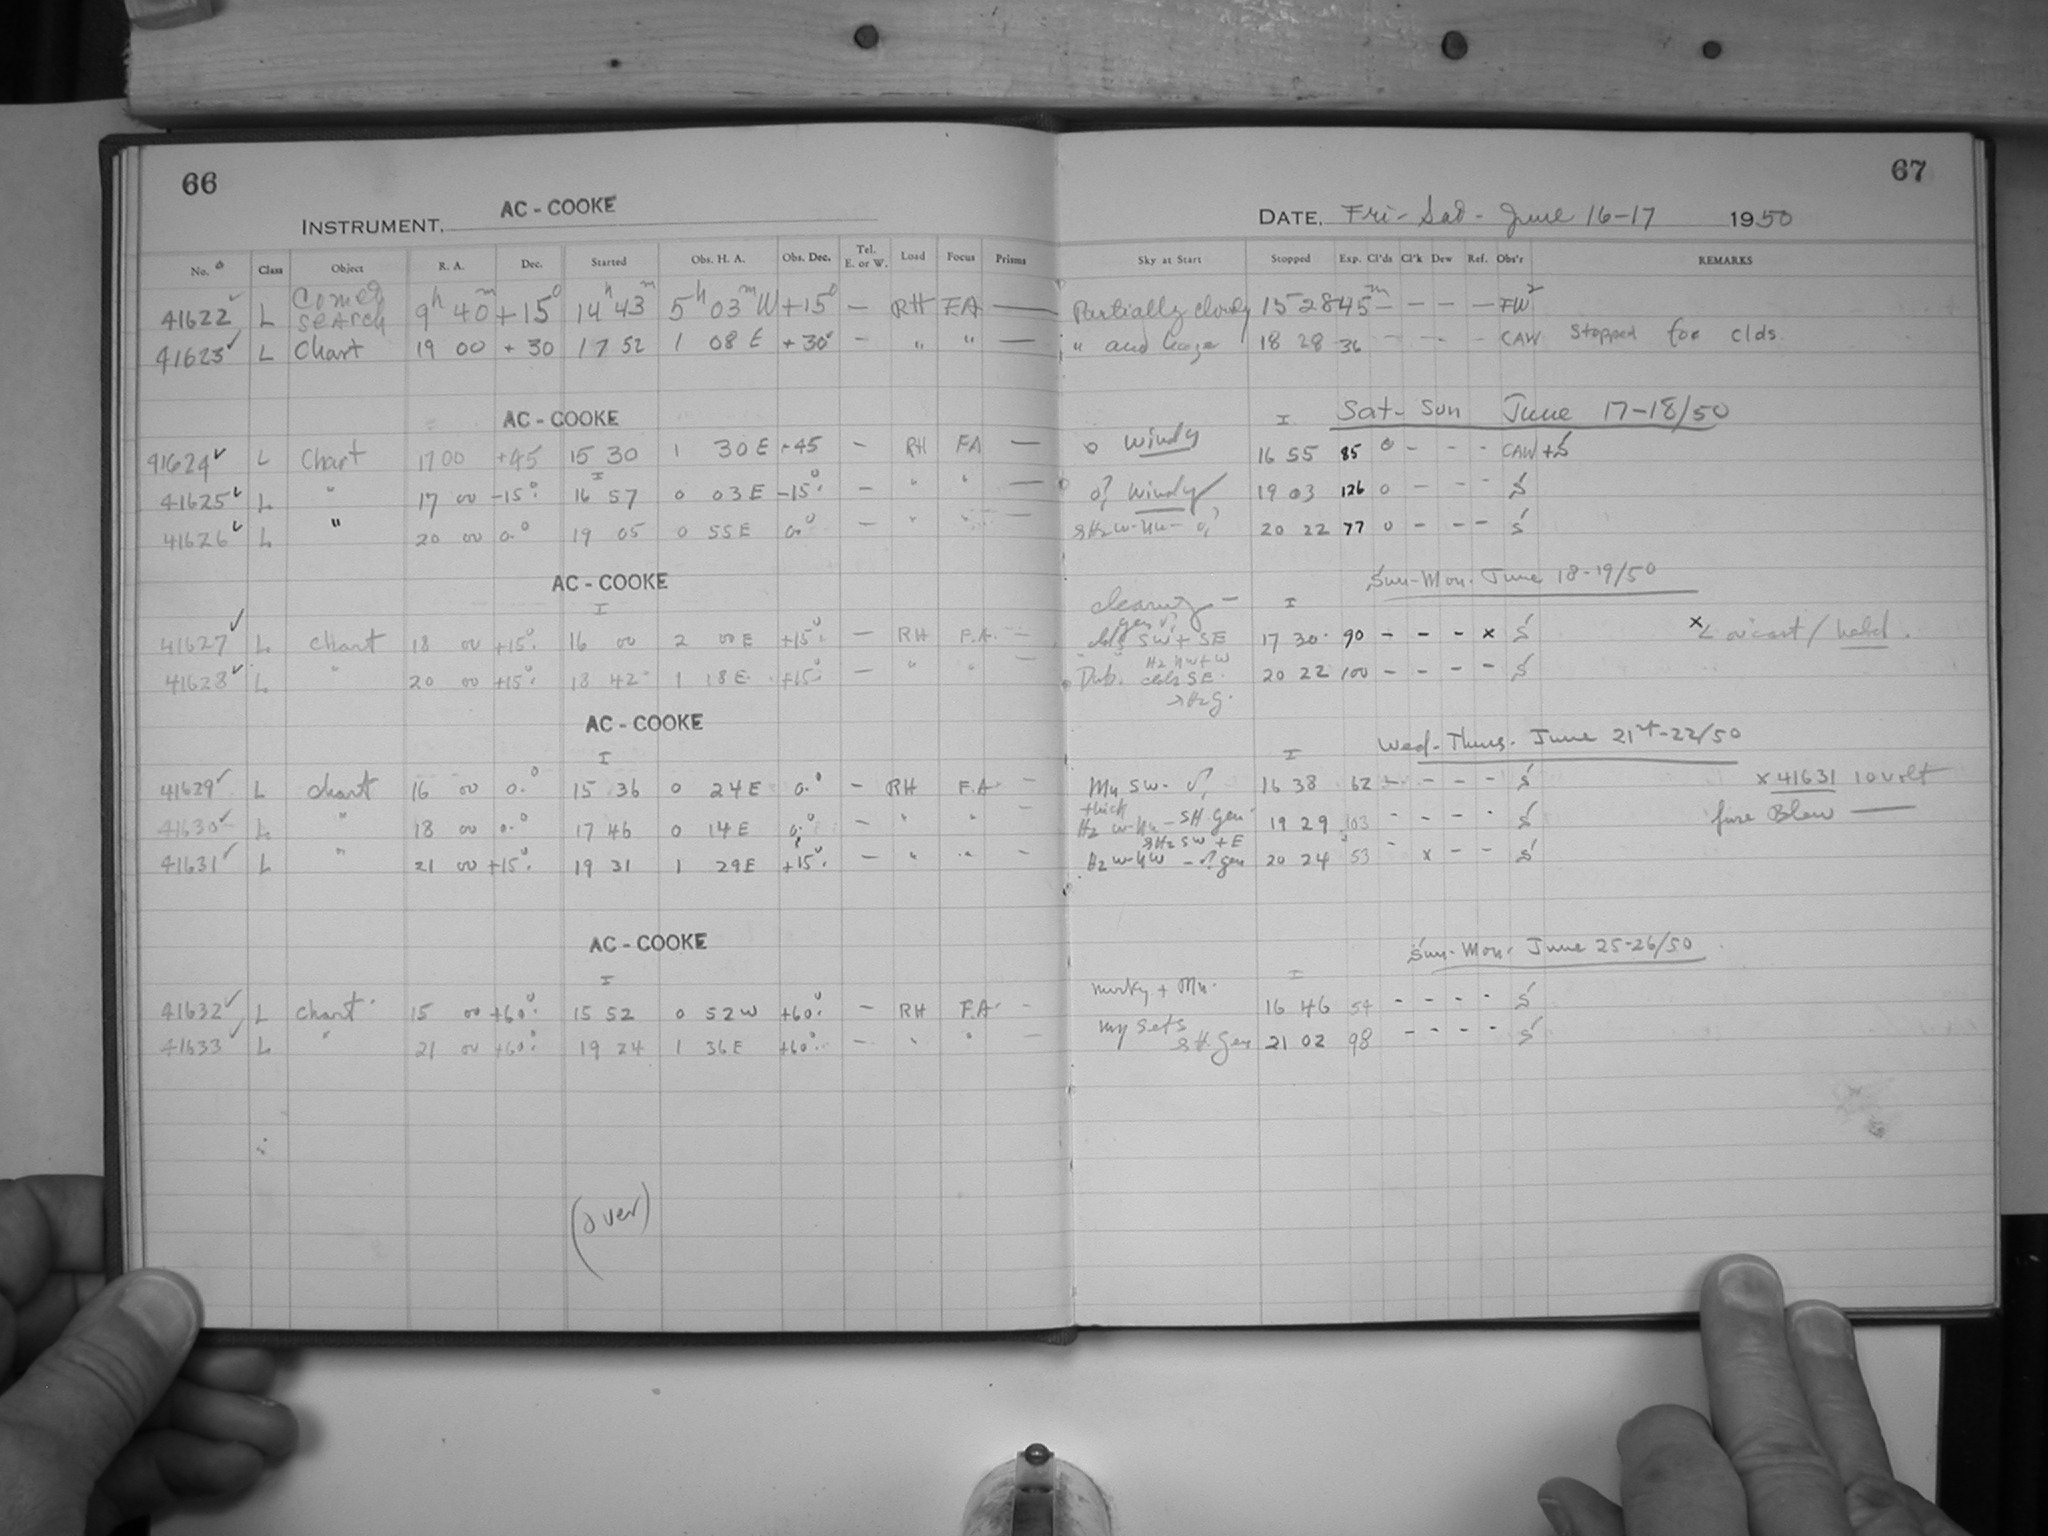 66
67
INSTRUMENT, AC - COOKE
DATE, Fri - Sat - June 16-17 1950
No. Class Object R. A. Dec. Started Obs. H. A. Obs. Dec. Tel. E. or W. Load Focus Prisms Sky at Start Stopped Exp. Cl'ds Cl'k Dew Ref. Obs'r REMARKS
41622 ✓ L Comet Search 9h 40m +15° 14h 43m 5h 03m W +15° — RH FA — Partially cloudy 15 28 45m — — — — FW²
41623 ✓ L Chart 19 00 + 30 17 52 1 08 E + 30° — " " — " and haze 18 28 36 — — — — CAW Stopped for clds.
AC - COOKE
Sat - Sun June 17-18/50
91624 ✓ L Chart 17 00 +45 15 30 1 30 E +45 — RH FA — 0 windy 16 55 85 0 - - - CAW + S
41625 ✓ L " 17 00 -15° 16 57 0 03 E -15° — " " — 0? windy 19 03 126 0 - - - S
41626 ✓ L " 20 00 0.° 19 05 0 55 E 0.° — " " — 20 22 77 0 - - - S
AC - COOKE
Sun-Mon. June 18-19/50
41627 ✓ L chart 18 00 +15° 16 00 2 00 E +15° — RH F.A. — clearing — SW + SE 17 30 90 - - - x S x held.
41628 ✓ L " 20 00 +15° 18 42 1 18 E +15° — " " — Dub. clds SE 20 22 100 - - - - S
AC - COOKE
Wed - Thurs. June 21st-22/50
41629 ✓ L chart 16 00 0.° 15 36 0 24 E 0.° — RH F.A — SW. 16 38 62 - - - - S x 41631 10 volt
41630 ✓ L " 18 00 0.° 17 46 0 14 E 0.° — " " — thick 19 29 103 - - - - S fuse Blew —
41631 ✓ L " 21 00 +15° 19 31 1 29 E +15° — " " - gen 20 24 53 - x - - S
AC - COOKE
Sun - Mon. June 25-26/50
41632 ✓ L chart 15 00 +60° 15 52 0 52 W +60° — RH F.A - murky + 16 46 54 - - - - S
41633 ✓ L " 21 00 +60° 19 24 1 36 E +60° — " " — 21 02 98 - - - - S
(over)